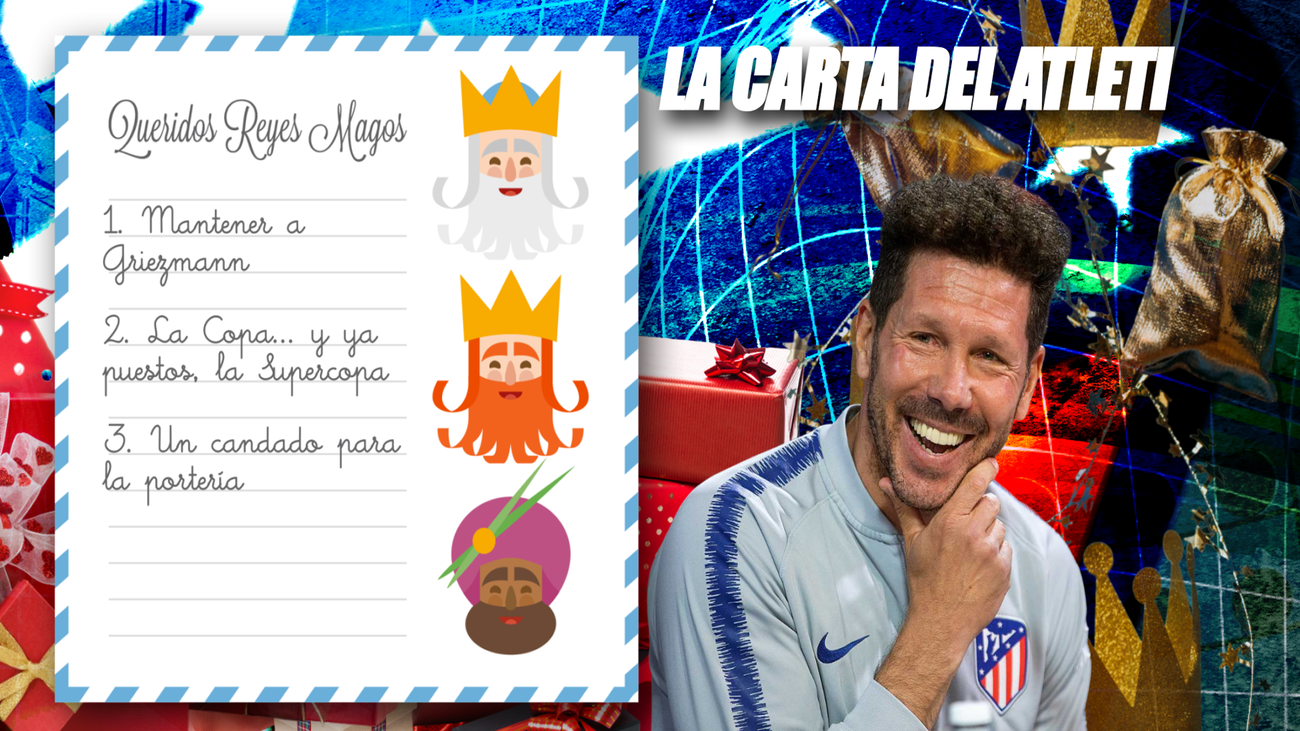 LA CARTA DEL ATLETI
Queridos Reyes Magos
1. Mantener a
Griezmann
2. La Copa... y ya
puestos, la Supercopa
3. Un candado para
la portería